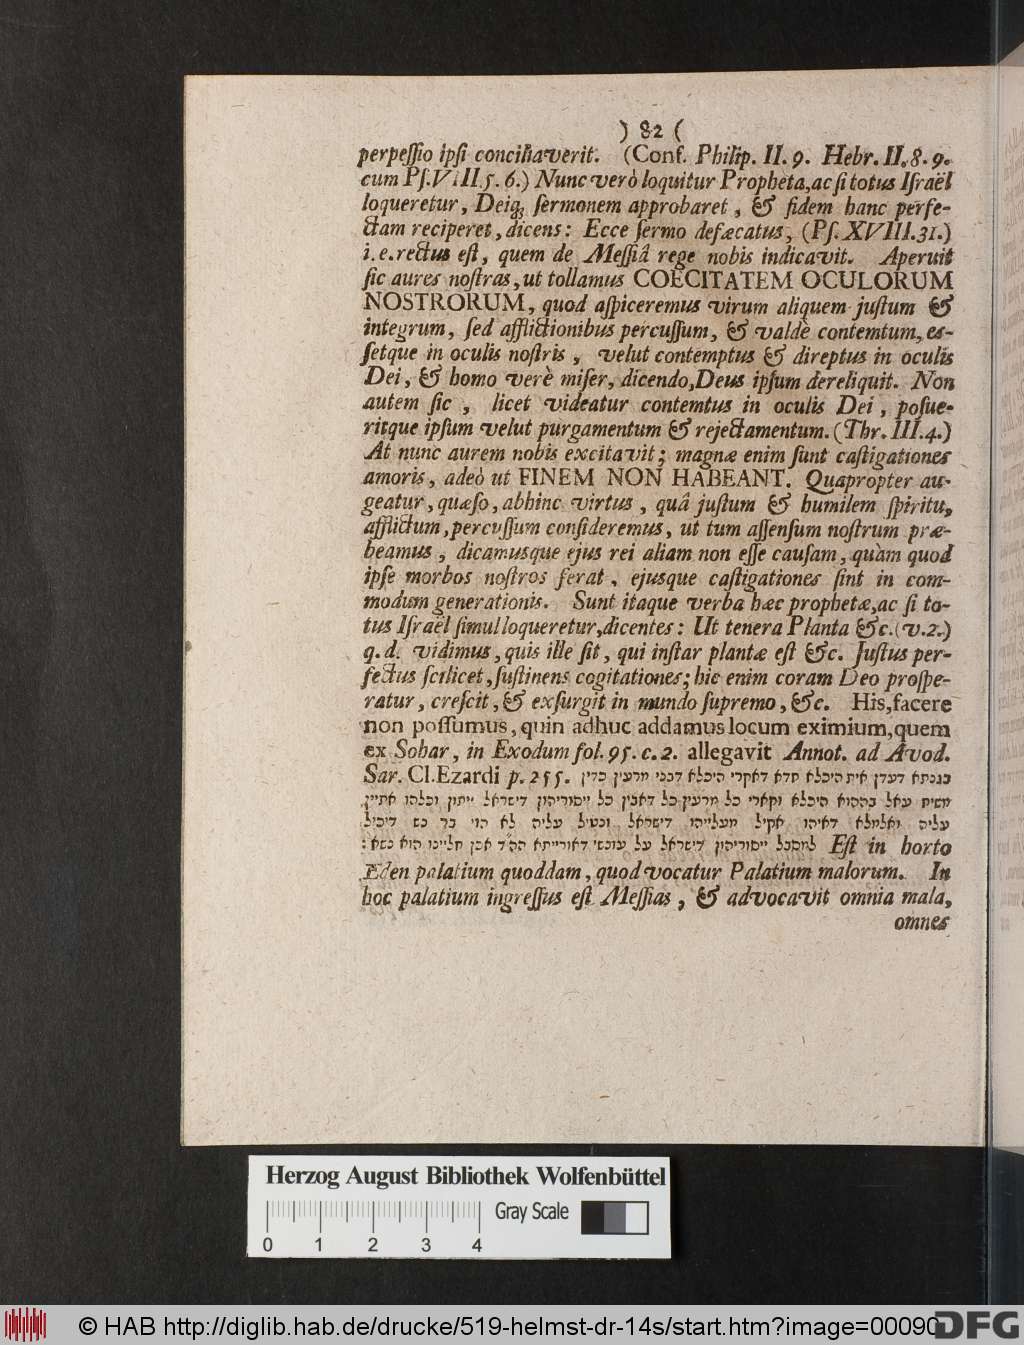 ) 82 (
perpeſſio ipſi conciliaverit. (Conf. Philip. II. 9. Hebr. II. 8. 9.
cum Pſ. VIII. 5. 6.) Nunc verò loquitur Propheta, ac ſi totus Iſraël
loqueretur, Deiq; ſermonem approbaret, & fidem hanc perfe-
ctam reciperet, dicens: Ecce ſermo defæcatus, (Pſ. XVIII. 31.)
i. e. rectus eſt, quem de Meſſiâ rege nobis indicavit. Aperuit
ſic aures noſtras, ut tollamus COECITATEM OCULORUM
NOSTRORUM, quod aſpiceremus virum aliquem juſtum &
integrum, ſed afflictionibus percuſſum, & valdè contemtum, eſ-
ſetque in oculis noſtris, velut contemptus & direptus in oculis
Dei, & homo verè miſer, dicendo, Deus ipſum dereliquit. Non
autem ſic, licet videatur contemtus in oculis Dei, poſue-
ritque ipſum velut purgamentum & rejectamentum. (Thr. III. 4.)
At nunc aurem nobis excitavit; magnæ enim ſunt caſtigationes
amoris, adeò ut FINEM NON HABEANT. Quapropter au-
geatur, quæſo, abhinc virtus, quâ juſtum & humilem ſpiritu,
afflictum, percuſſum conſideremus, ut tum aſſenſum noſtrum præ-
beamus, dicamusque ejus rei aliam non eſſe cauſam, quàm quod
ipſe morbos noſtros ferat, ejusque caſtigationes ſint in com-
modum generationis. Sunt itaque verba hæc prophetæ, ac ſi to-
tus Iſraël ſimul loqueretur, dicentes: Ut tenera Planta &c. (v. 2.)
q. d. vidimus, quis ille ſit, qui inſtar plantæ eſt &c. Juſtus per-
fectus ſcilicet, ſuſtinens cogitationes; hic enim coram Deo proſpe-
ratur, creſcit, & exſurgit in mundo ſupremo, &c. His, facere
non poſſumus, quin adhuc addamus locum eximium, quem
ex Sohar, in Exodum fol. 95. c. 2. allegavit Annot. ad Avod.
Sar. Cl. Ezardi p. 255. בגנתא דעדן אית היכלא חדא דאקרי היכלא דבני מרעין כדין
משיח עאל בההוא היכלא וקארי כל מרעין כל דאבין כל ייסוריהון דישראל ייתון וכלהו אתיין
עליה ואלמלא דאיהו אקיל מעלייהו דישראל ונטיל עליה לא הוי בר נש דיכיל
למסבל ייסוריהון דישראל על עונשי דאורייתא הה״ד אכן חליינו הוא נשא: Eſt in horto
Eden palatium quoddam, quod vocatur Palatium malorum. In
hoc palatium ingreſſus eſt Meſſias, & advocavit omnia mala,
omnes
Herzog August Bibliothek Wolfenbüttel
Gray Scale
0 1 2 3 4
© HAB http://diglib.hab.de/drucke/519-helmst-dr-14s/start.htm?image=00090
DFG